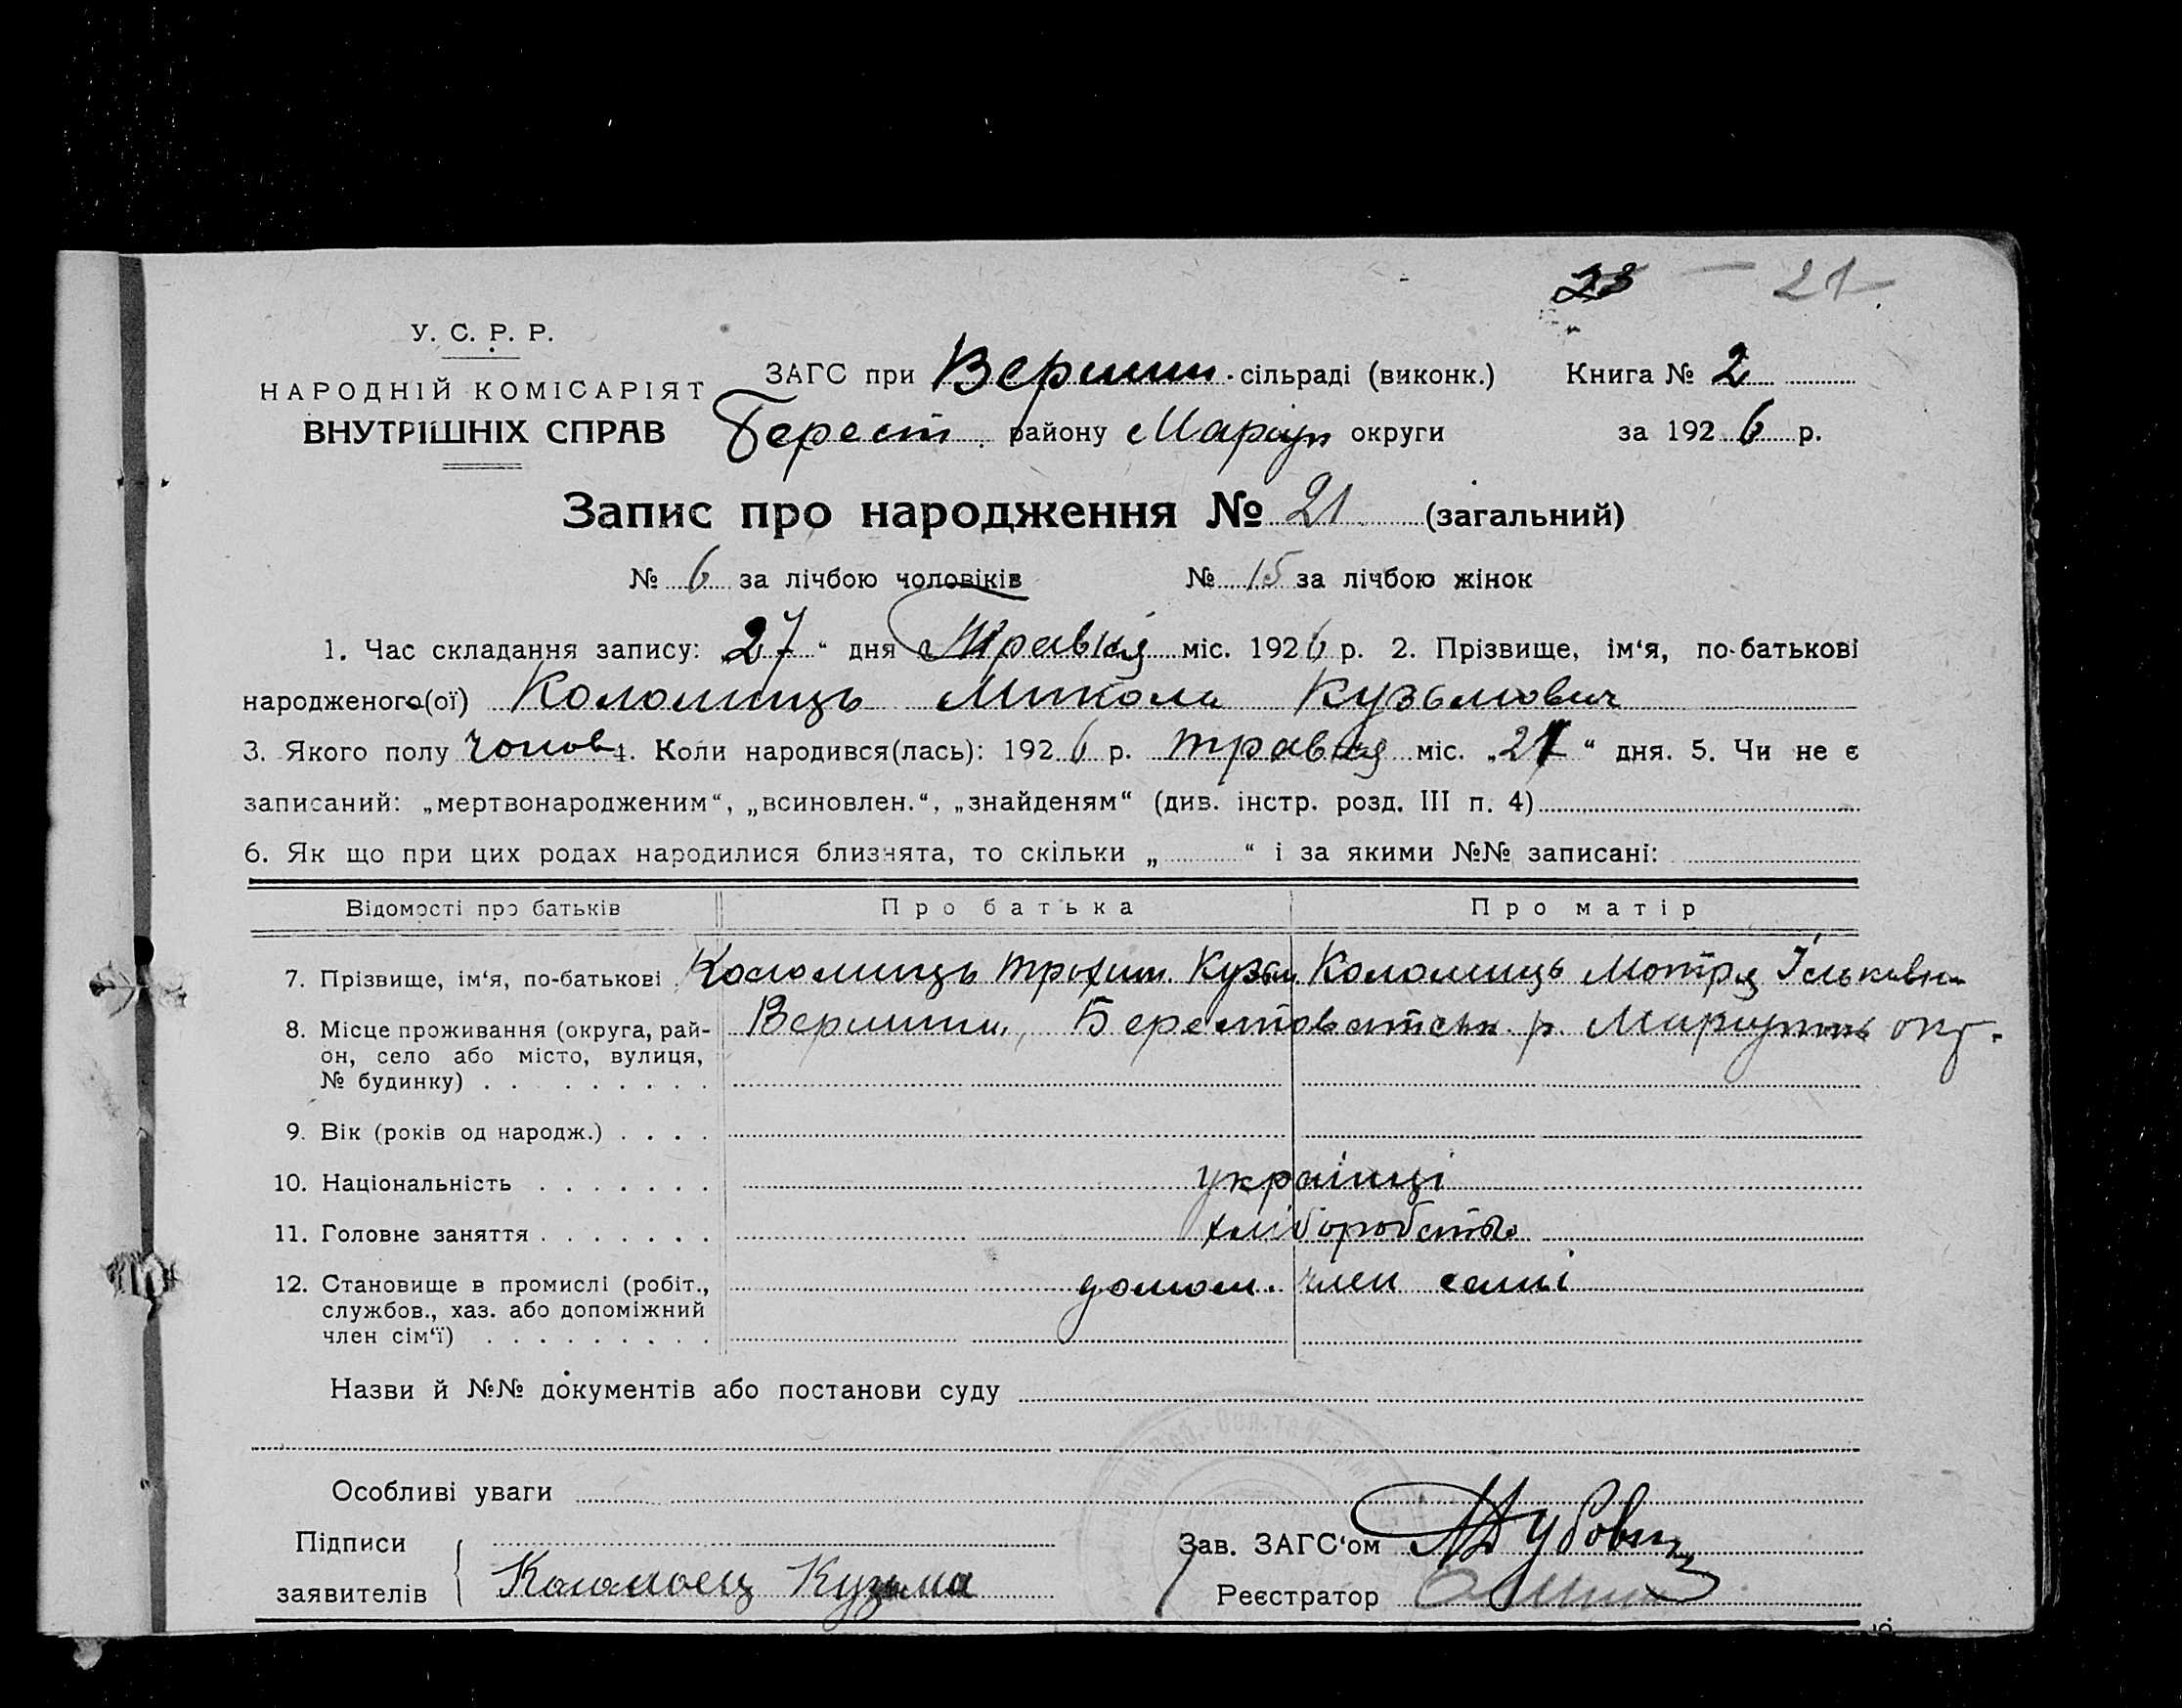 23 — 21
У. С. Р. Р.
НАРОДНІЙ КОМІСАРІЯТ
ВНУТРІШНІХ СПРАВ
ЗАГС при Вершин. сільраді (виконк.) Книга № 2
Берест. району Маріуп округи за 1926 р.
Запис про народження № 21 (загальний)
№ 6 за лічбою чоловіків № 15 за лічбою жінок
1. Час складання запису: „27“ дня Травня міс. 1926 р. 2. Прізвище, ім‘я, по-батькові
народженого(ої) Коломиць Микола Кузьмович
3. Якого полу чолов 4. Коли народився(лась): 1926 р. травня міс. „27“ дня. 5. Чи не є
записаний: „мертвонародженим“, „всиновлен.“, „знайденям“ (див. інстр. розд. III п. 4)
6. Як що при цих родах народилися близнята, то скільки „ “ і за якими №№ записані:
Відомості про батьків Про батька Про матір
7. Прізвище, ім‘я, по-батькові Коломиць Трохим. Кузьм. Коломиць Мотря Ільковна
8. Місце проживання (округа, рай- Вершини, Берестоватськ. р. Маріупіль окр.
он, село або місто, вулиця,
№ будинку)
9. Вік (років од народж.)
10. Національність українці
11. Головне заняття хліборобство
12. Становище в промислі (робіт., допом. член семі
службов., хаз. або допоміжний
член сім‘ї)
Назви й №№ документів або постанови суду
Особливі уваги
Підписи
заявителів Коломоец Кузьма
Зав. ЗАГС‘ом
Реєстратор